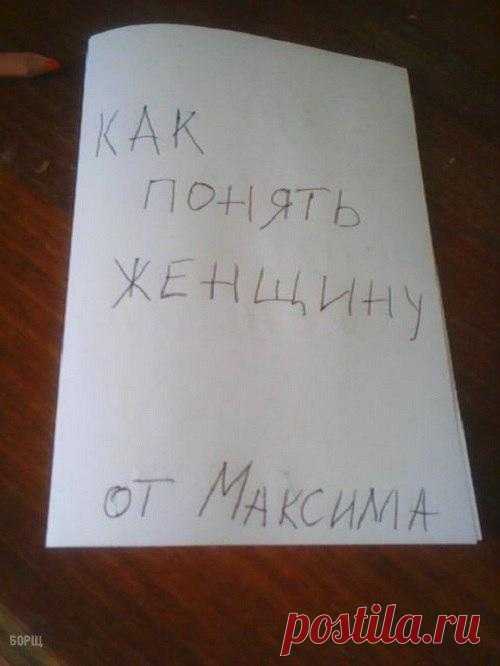 КАК
ПОНЯТЬ
ЖЕНЩИНУ
ОТ МАКСИМА
БОРЩ
postila.ru